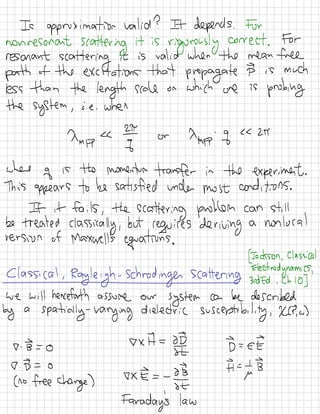 Is approximation valid? It depends. For
nonresonant scattering it is rigorously correct. For
resonant scattering it is valid when the mean free
path of the excitations that propagate P⃗ is much
less than the length scale on which one is probing
the system, i.e. when
λ_MFP << 2π/q or λ_MFP · q << 2π
where q is the momentum transfer in the experiment.
This appears to be satisfied under most conditions.
If it fails, the scattering problem can still
be treated classically, but requires deriving a nonlocal
version of Maxwell's equations.
[Jackson, Classical
Electrodynamics,
3rd Ed., Ch 10]
Classical, Rayleigh-Schrodinger Scattering
We will henceforth assume our system can be described
by a spatially-varying dielectric susceptibility, χ(r,ω)
∇·B⃗ = 0 ∇×H⃗ = ∂D⃗/∂t D⃗ = εE⃗
∇·D⃗ = 0 H⃗ = 1/μ B⃗
(no free charge) ∇×E⃗ = -∂B⃗/∂t
Faraday's law